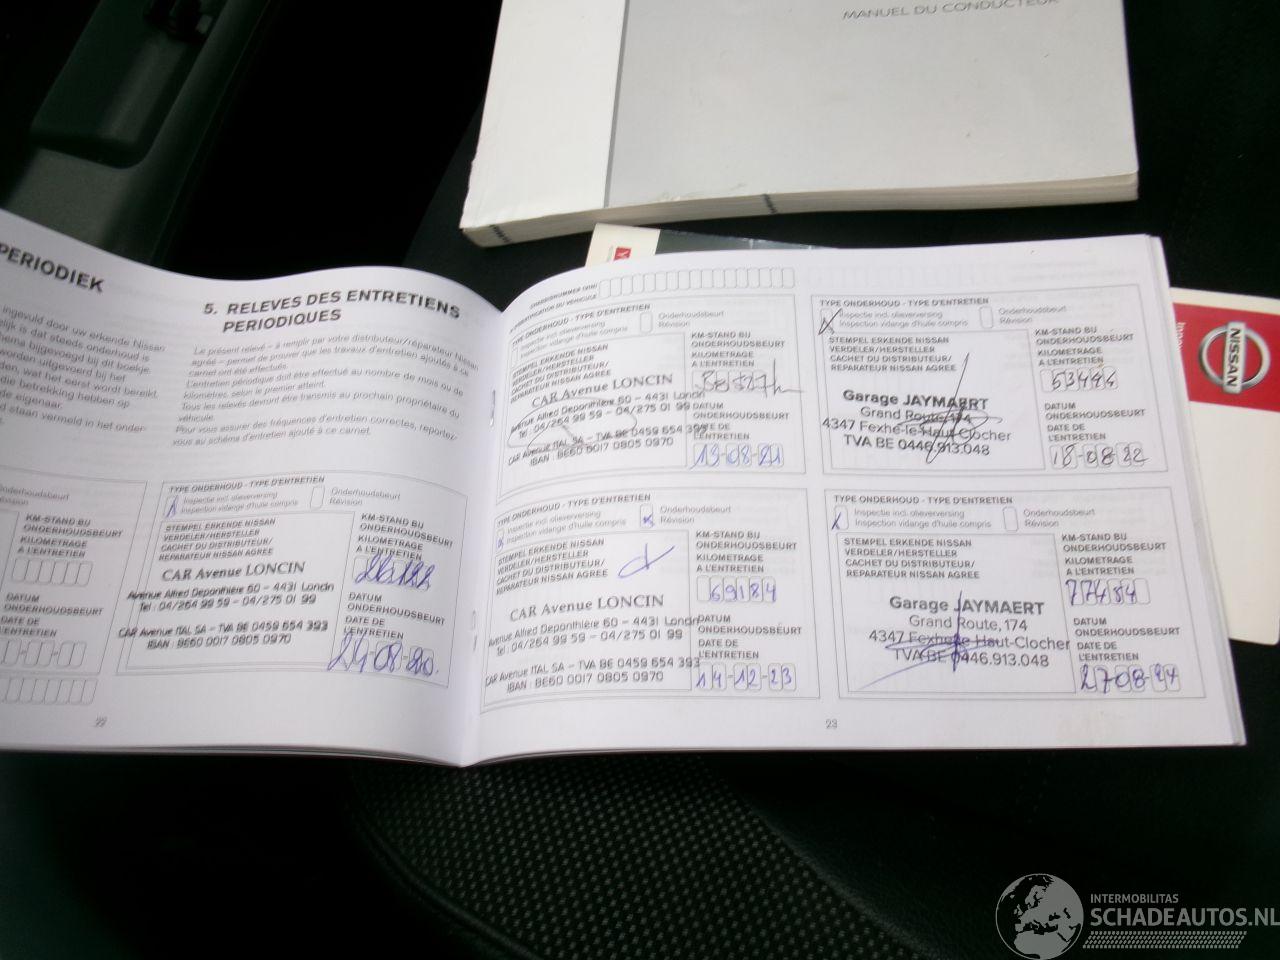 MANUEL DU CONDUCTEUR
PERIODIEK
ingevuld door uw erkende Nissan
lijk is dat steeds onderhoud is
hema bijgevoegd bij dit boekje.
worden uitgevoerd bij het
den, wat het eerst wordt bereikt.
die betrekking hebben op
de eigenaar.
d staan vermeld in het onder-
5. RELEVES DES ENTRETIENS
PERIODIQUES
Le présent relevé – à remplir par votre distributeur/réparateur Nissan
agréé – permet de prouver que les travaux d'entretien ajoutés à ce
carnet ont été effectués.
L'entretien périodique doit être effectué au nombre de mois ou de
kilomètres, selon le premier atteint.
Tous les relevés devront être transmis au prochain propriétaire du
véhicule.
Pour vous assurer des fréquences d'entretien correctes, reportez-
vous au schéma d'entretien ajouté à ce carnet.
Onderhoudsbeurt
Révision
KM-STAND BIJ
ONDERHOUDSBEURT
KILOMETRAGE
A L'ENTRETIEN
DATUM
ONDERHOUDSBEURT
DATE DE
L'ENTRETIEN
TYPE ONDERHOUD - TYPE D'ENTRETIEN
Inspectie incl. olieverversing
Inspection vidange d'huile compris
Onderhoudsbeurt
Révision
STEMPEL ERKENDE NISSAN
VERDELER/HERSTELLER
CACHET DU DISTRIBUTEUR/
REPARATEUR NISSAN AGREE
CAR Avenue LONCIN
Avenue Alfred Deponthière 60 – 4431 Loncin
Tel : 04/264 99 59 – 04/275 01 99
CAR Avenue ITAL SA – TVA BE 0459 654 393
IBAN : BE60 0017 0805 0970
KM-STAND BIJ
ONDERHOUDSBEURT
KILOMETRAGE
A L'ENTRETIEN
DATUM
ONDERHOUDSBEURT
DATE DE
L'ENTRETIEN
22
CHASSISNUMMER (VIN)
N° IDENTIFICATION DU VEHICULE
TYPE ONDERHOUD - TYPE D'ENTRETIEN
Inspectie incl. olieverversing
Inspection vidange d'huile compris
Onderhoudsbeurt
Révision
STEMPEL ERKENDE NISSAN
VERDELER/HERSTELLER
CACHET DU DISTRIBUTEUR/
REPARATEUR NISSAN AGREE
CAR Avenue LONCIN
Avenue Alfred Deponthière 60 – 4431 Loncin
Tel : 04/264 99 59 – 04/275 01 99
CAR Avenue ITAL SA – TVA BE 0459 654 393
IBAN : BE60 0017 0805 0970
KM-STAND BIJ
ONDERHOUDSBEURT
KILOMETRAGE
A L'ENTRETIEN
DATUM
ONDERHOUDSBEURT
DATE DE
L'ENTRETIEN
13-08-21
TYPE ONDERHOUD - TYPE D'ENTRETIEN
Inspectie incl. olieverversing
Inspection vidange d'huile compris
Onderhoudsbeurt
Révision
STEMPEL ERKENDE NISSAN
VERDELER/HERSTELLER
CACHET DU DISTRIBUTEUR/
REPARATEUR NISSAN AGREE
Garage JAYMAERT
Grand Route, 174
4347 Fexhe-le-Haut-Clocher
TVA BE 0446.913.048
KM-STAND BIJ
ONDERHOUDSBEURT
KILOMETRAGE
A L'ENTRETIEN
DATUM
ONDERHOUDSBEURT
DATE DE
L'ENTRETIEN
18-08-22
TYPE ONDERHOUD - TYPE D'ENTRETIEN
Inspectie incl. olieverversing
Inspection vidange d'huile compris
Onderhoudsbeurt
Révision
STEMPEL ERKENDE NISSAN
VERDELER/HERSTELLER
CACHET DU DISTRIBUTEUR/
REPARATEUR NISSAN AGREE
CAR Avenue LONCIN
Avenue Alfred Deponthière 60 – 4431 Loncin
Tel : 04/264 99 59 – 04/275 01 99
CAR Avenue ITAL SA – TVA BE 0459 654 393
IBAN : BE60 0017 0805 0970
KM-STAND BIJ
ONDERHOUDSBEURT
KILOMETRAGE
A L'ENTRETIEN
69184
DATUM
ONDERHOUDSBEURT
DATE DE
L'ENTRETIEN
14-12-23
TYPE ONDERHOUD - TYPE D'ENTRETIEN
Inspectie incl. olieverversing
Inspection vidange d'huile compris
Onderhoudsbeurt
Révision
STEMPEL ERKENDE NISSAN
VERDELER/HERSTELLER
CACHET DU DISTRIBUTEUR/
REPARATEUR NISSAN AGREE
Garage JAYMAERT
Grand Route, 174
4347 Fexhe-le-Haut-Clocher
TVA BE 0446.913.048
KM-STAND BIJ
ONDERHOUDSBEURT
KILOMETRAGE
A L'ENTRETIEN
77484
DATUM
ONDERHOUDSBEURT
DATE DE
L'ENTRETIEN
27-08-24
23
NISSAN
INTERMOBILITAS
SCHADEAUTOS.NL